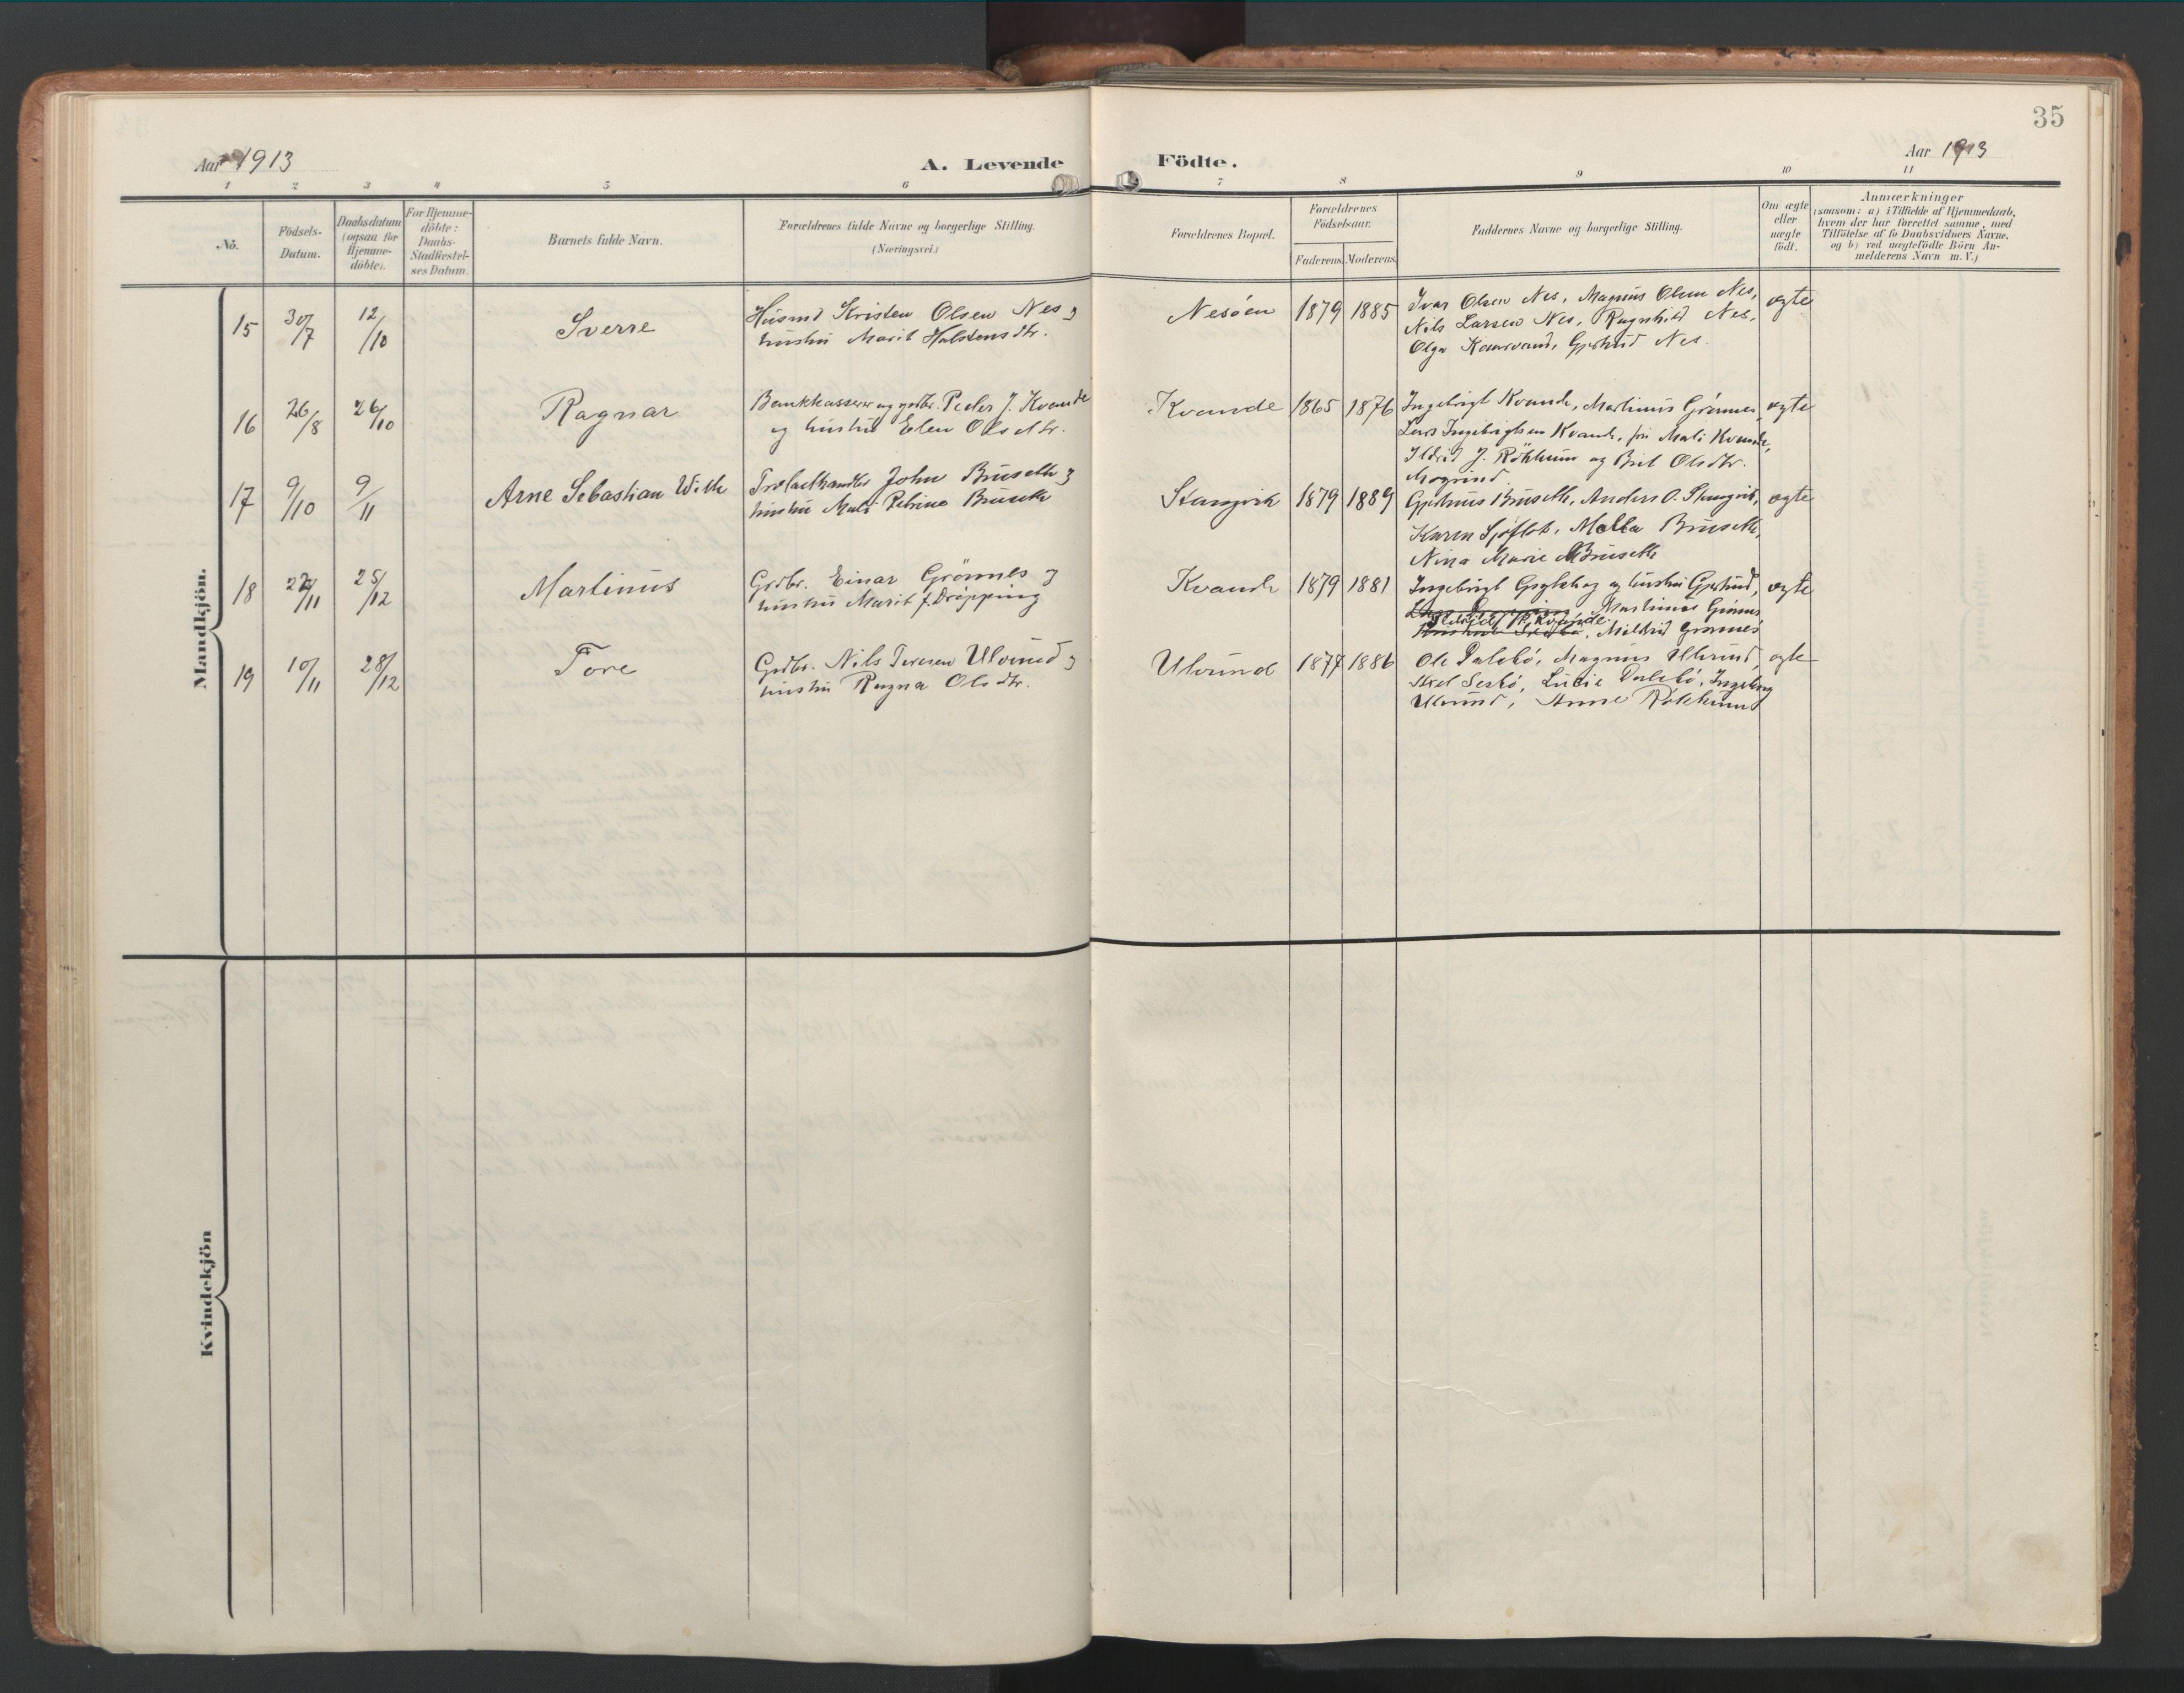 35
Aar 1913
A. Levende Födte.
Aar 1913
1 2 3 4 5 6 7 8 9 10 11
No.
Födsels-
Datum.
Daabsdatum
(ogsaa for
Hjemme-
döbte).
For Hjemme-
döbte:
Daabs-
Stadfestel-
ses Datum.
Barnets fulde Navn.
Forældrenes fulde Navne og borgerlige Stilling.
(Næringsvei.)
Forældrenes Bopæl.
Forældrenes
Födselsaar.
Faderens. Moderens.
Faddernes Navne og borgerlige Stilling.
Om ægte
eller
uægte
födt.
Anmærkninger
(saasom: a) i Tilfælde af Hjemmedaab,
hvem der har forrettet samme, med
Tilföielse af to Daabsvidners Navne,
og b) ved uægtefödte Börn An-
melderens Navn m. V.)
Mandkjön.
15 30/7 12/10 Sverre
Husmd Kristen Olsen Nes og
hustru Marit Halstensdtr.
Nesöen 1879 1885
Ivar Olsen Nes, Magnus Olsen Nes,
Nils Larsen Nes, Ragnhild Nes,
Olga Kaarvand, Gjertrud Nes.
ægte
16 26/8 26/10 Ragnar
Bankkasserer og grdbr. Peder J. Kvande
og hustru Elen Olsdtr.
Kvande 1865 1876
Ingebrigt Kvande, Martinus Grönnes,
Lars Ingebrigtsen Kvande, fru Mali Kvande,
Ildrid J. Rökkum og Brit Olsdtr.
Mogrind.
ægte
17 9/10 9/11 Arne Sebastian With
Trælasthandler John Bruseth og
hustru Mali Petrine Bruseth
Stangvik 1879 1889
Gjertinus Bruseth, Anders O. Stangvik,
Karen Sjöflot, Molla Bruseth,
Nina Marie Bruseth
ægte
18 22/11 25/12 Martinus
Grdbr. Einar Grönnes og
hustru Marit f. Dröpping
Kvande 1879 1881
Ingebrigt og hustru Gjertrud,
Martinus Grönnes
Kvande, Mildrid Grönnes
ægte
19 10/11 28/12 Tore
Grdbr. Nils Toresen Ulvund og
hustru Ragna Olsdtr.
Ulvund 1877 1886
Ole Dalebö, Magnus Ulvund,
Lucie Dalebö, Ingeborg
Ulvund, Anne Rökkum
ægte
Kvindekjön